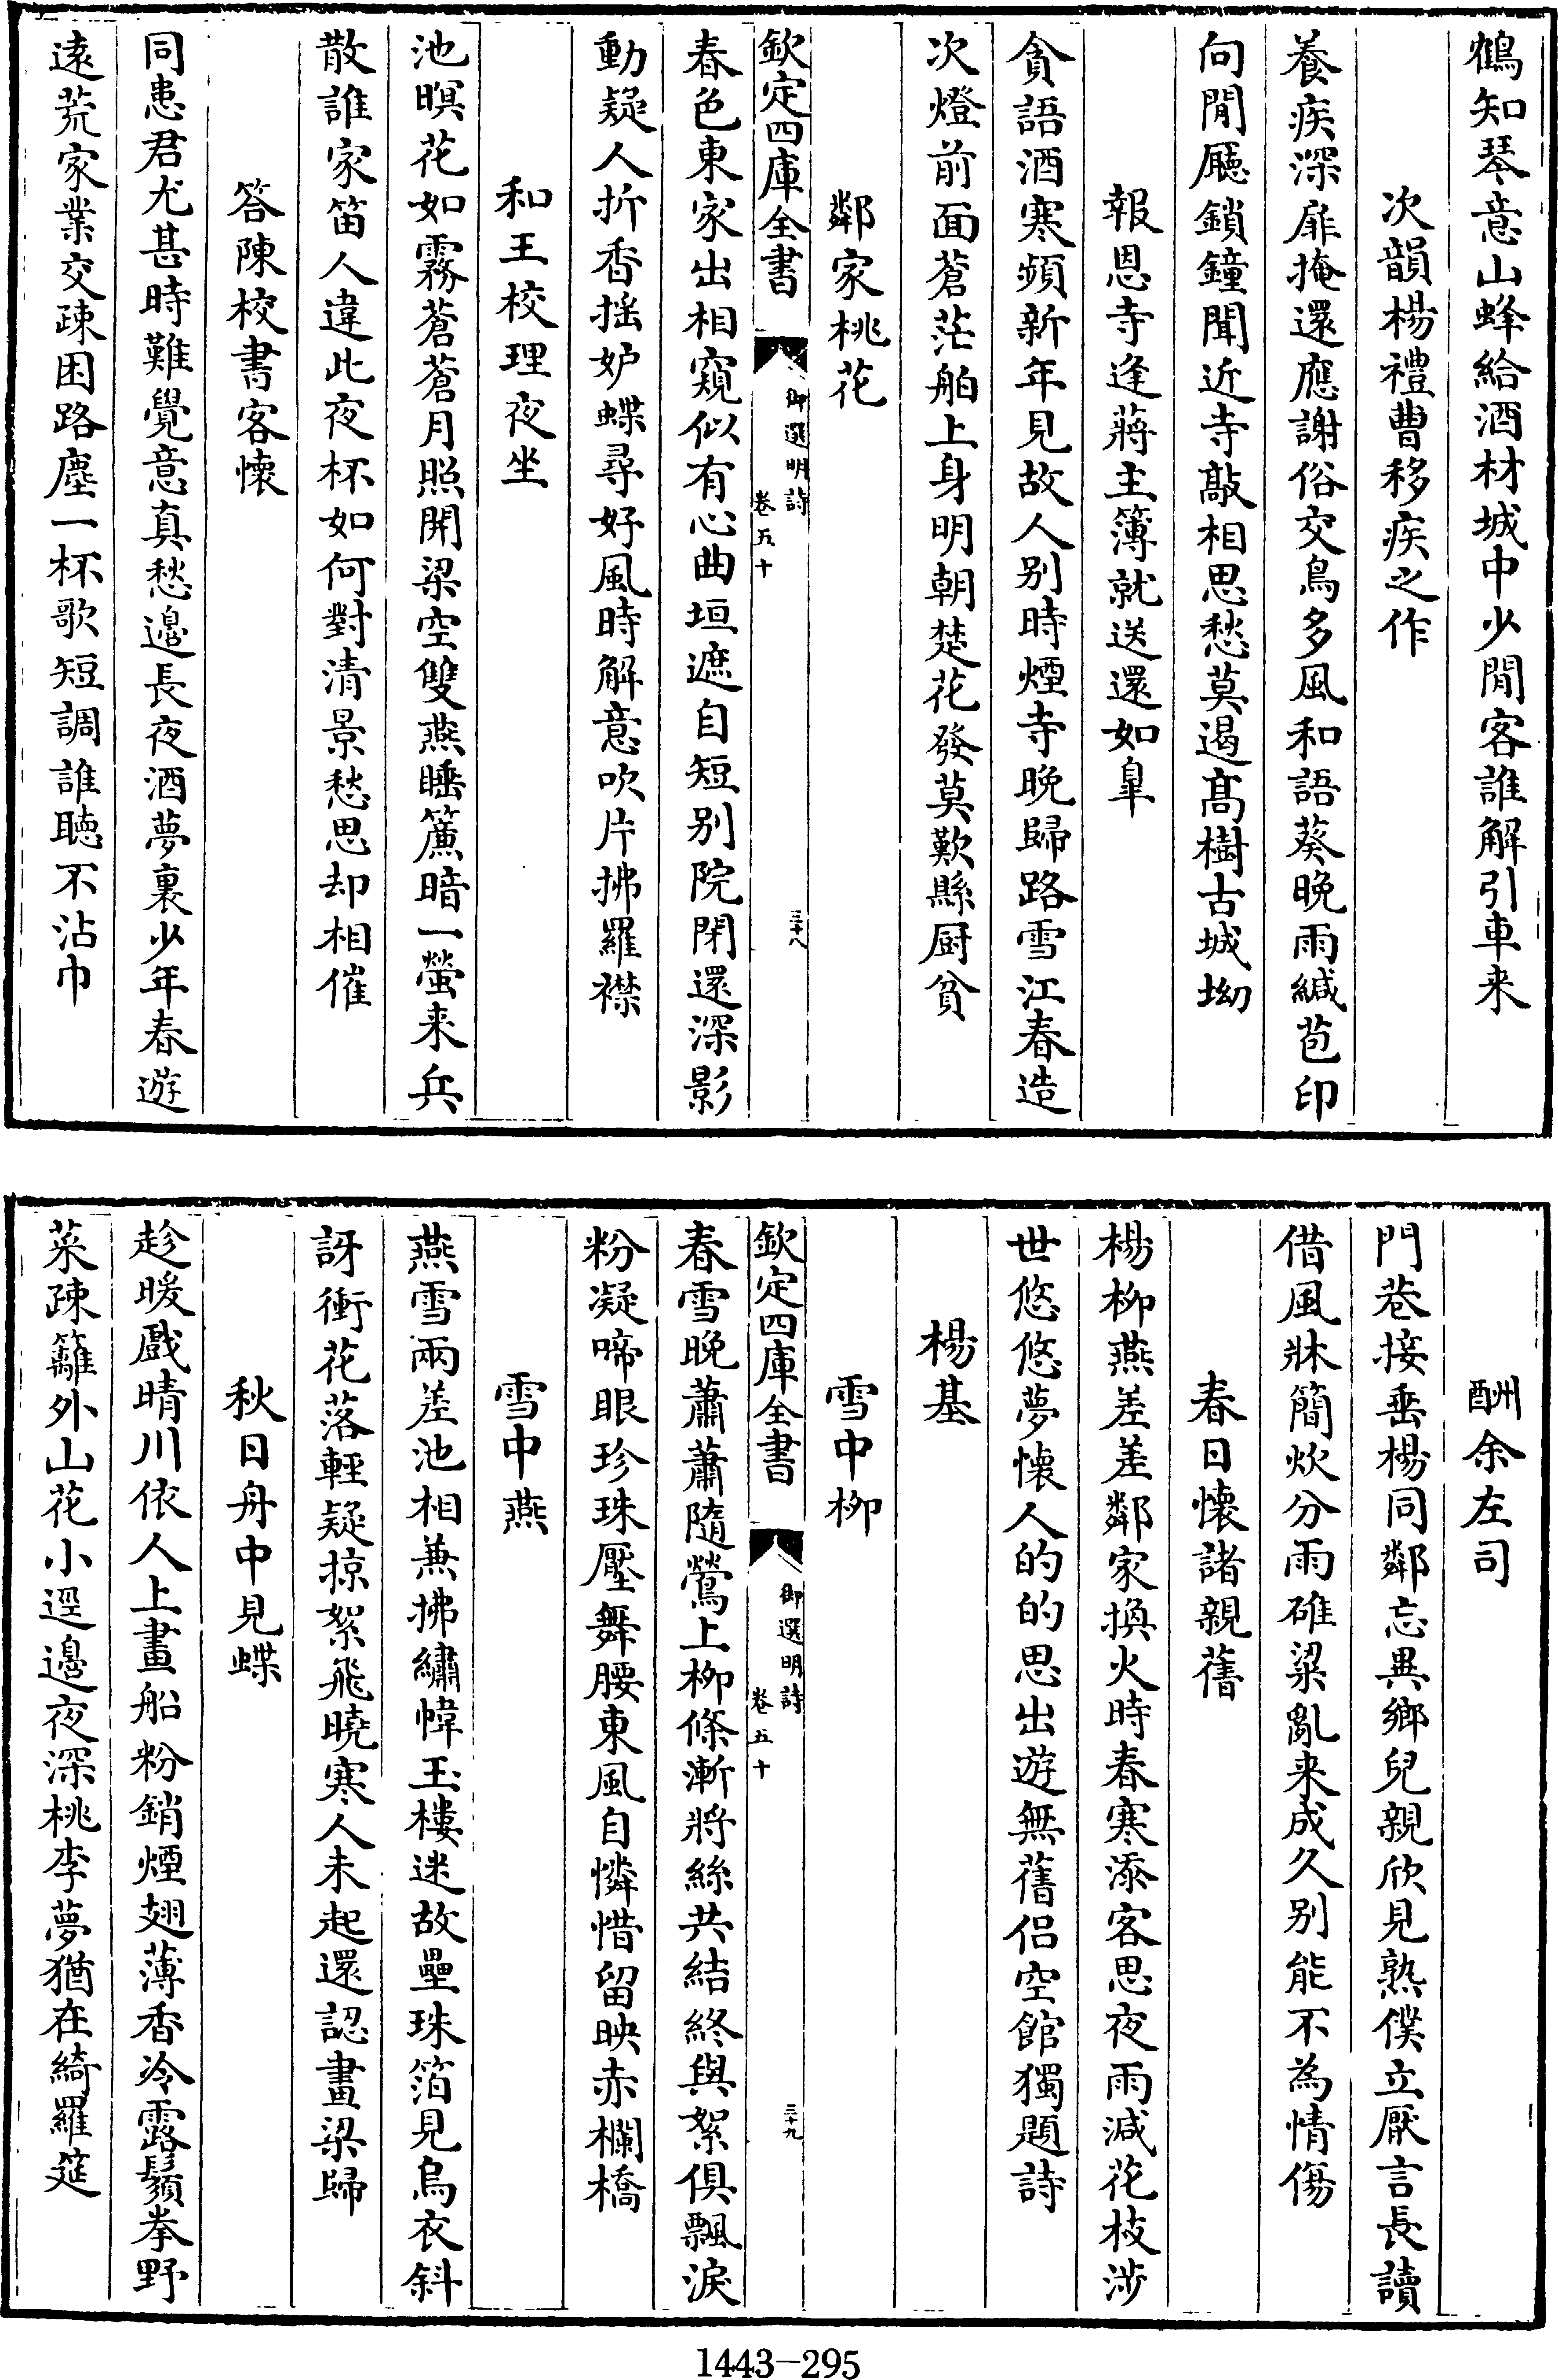 鶴知琴意山蜂給酒材城中少閒客誰解引車来
次韻楊禮曹移疾之作
養疾深扉掩還應謝俗交鳥多風和語葵晩雨緘苞印
向閒廳鎖鐘聞近寺敲相思愁莫遏髙樹古城坳
報恩寺逢蔣主簿就送還如臯
貪語酒寒頻新年見故人别時煙寺晩歸路雪江春造
次燈前面蒼茫舶上身明朝楚花發莫歎縣厨貧
鄰家桃花
欽定四庫全書
御選明詩
卷五十
三十八
春色東家出相窺似有心曲垣遮自短别院閉還深影
動疑人折香揺妒蝶尋好風時解意吹片拂羅襟
和王校理夜坐
池暝花如霧蒼蒼月照開梁空雙燕睡簾暗一螢来兵
散誰家笛人違此夜杯如何對清景愁思却相催
答陳校書客懐
同患君尤甚時難覺意真愁邉長夜酒夢裏少年春遊
逺荒家業交疎困路塵一杯歌短調誰聴不沾巾
酬余左司
門巷接垂楊同鄰忘異鄉兒親欣見熟僕立厭言長讀
借風牀簡炊分雨碓粱亂来成久别能不為情傷
春日懐諸親舊
楊柳燕差差鄰家換火時春寒添客思夜雨減花枝渉
世悠悠夢懐人的的思出遊無舊侣空館獨題詩
楊基
雪中柳
欽定四庫全書
御選明詩
卷五十
三十九
春雪晩蕭蕭隨鶯上柳條漸將絲共結終與絮俱飄淚
粉凝啼眼珍珠壓舞腰東風自憐惜留映赤欄橋
雪中燕
燕雪兩差池相兼拂繡幃玉樓迷故壘珠箔見烏衣斜
訝衝花落輕疑掠絮飛曉寒人未起還認畫梁歸
秋日舟中見蝶
趁暖戲晴川依人上畫船粉銷煙翅薄香冷露鬚拳野
菜疎籬外山花小逕邉夜深桃李夢猶在綺羅筵
1443-295